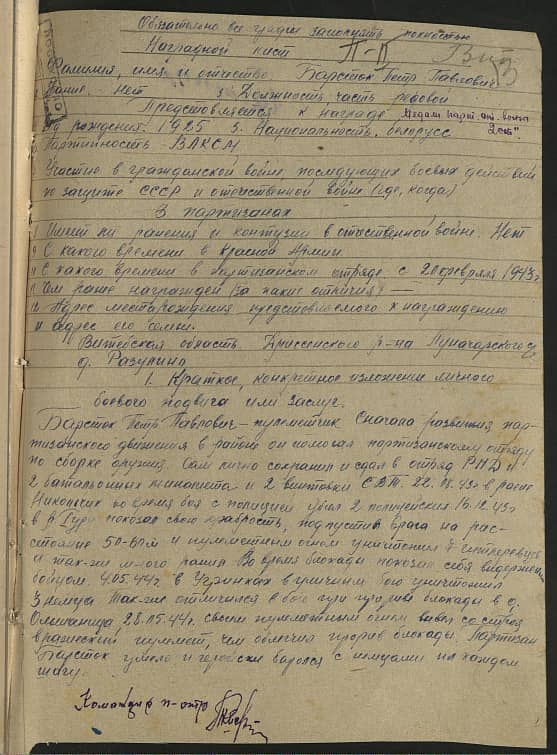 Обязательно все графы заполнять полностью
Наградной лист П-II
Фамилия, имя и отчество Барсток Петр Павлович
Звание нет 3 Должность, часть рядовой
Представляется к награде "Медаль парт. от. войны
2 ст"
Год рождения 1925 5. Национальность белорусс
Партийность ВЛКСМ
Участие в гражданской войне, последующих боевых действий
по защите СССР и отечественной войне (где, когда)
В партизанах
Имеет ли ранения и контузии в отечественной войне. Нет
С какого времени в Красной Армии
С какого времени в партизанском отряде с 20 февраля 1943 г
Чем ранее награжден (за какие отличия) —
Адрес места рождения представляемого к награждению
и адрес его семьи.
Витебская область Дриссенского р-на Луначарского с/с
д. Разулино
1. Краткое, конкретное изложение личного
боевого подвига или заслуг.
Барсток Петр Павлович – пулеметчик Сначала развития пар-
тизанского движения в районе он помогал партизанскому отряду
по сборке оружия. Сам лично сохранил и сдал в отряд РПД и
2 батальонных миномета и 2 винтовки СВТ. 22. 43 г в
во время боя с полицией убил 2 полицейских 16.12.43 г
в показал свою храбрость, подпустив врага на рас-
стояние 50-60 м и пулеметным огнем уничтожил 7
и так-же много ранил Во время блокады показал себя выдержаным
бойцом. 4.05.44 г. в уличном бою уничтожил
3 немца Так-же отличился в бою при прорыве блокады в д.
28.05.44 г. своим пулеметным огнем вывел со строя
вражеский пулемет, чем облегчил прорыв блокады. Партизан
Барсток умело и геройски боролся с немцами на каждом
шагу.
Командир п-отр